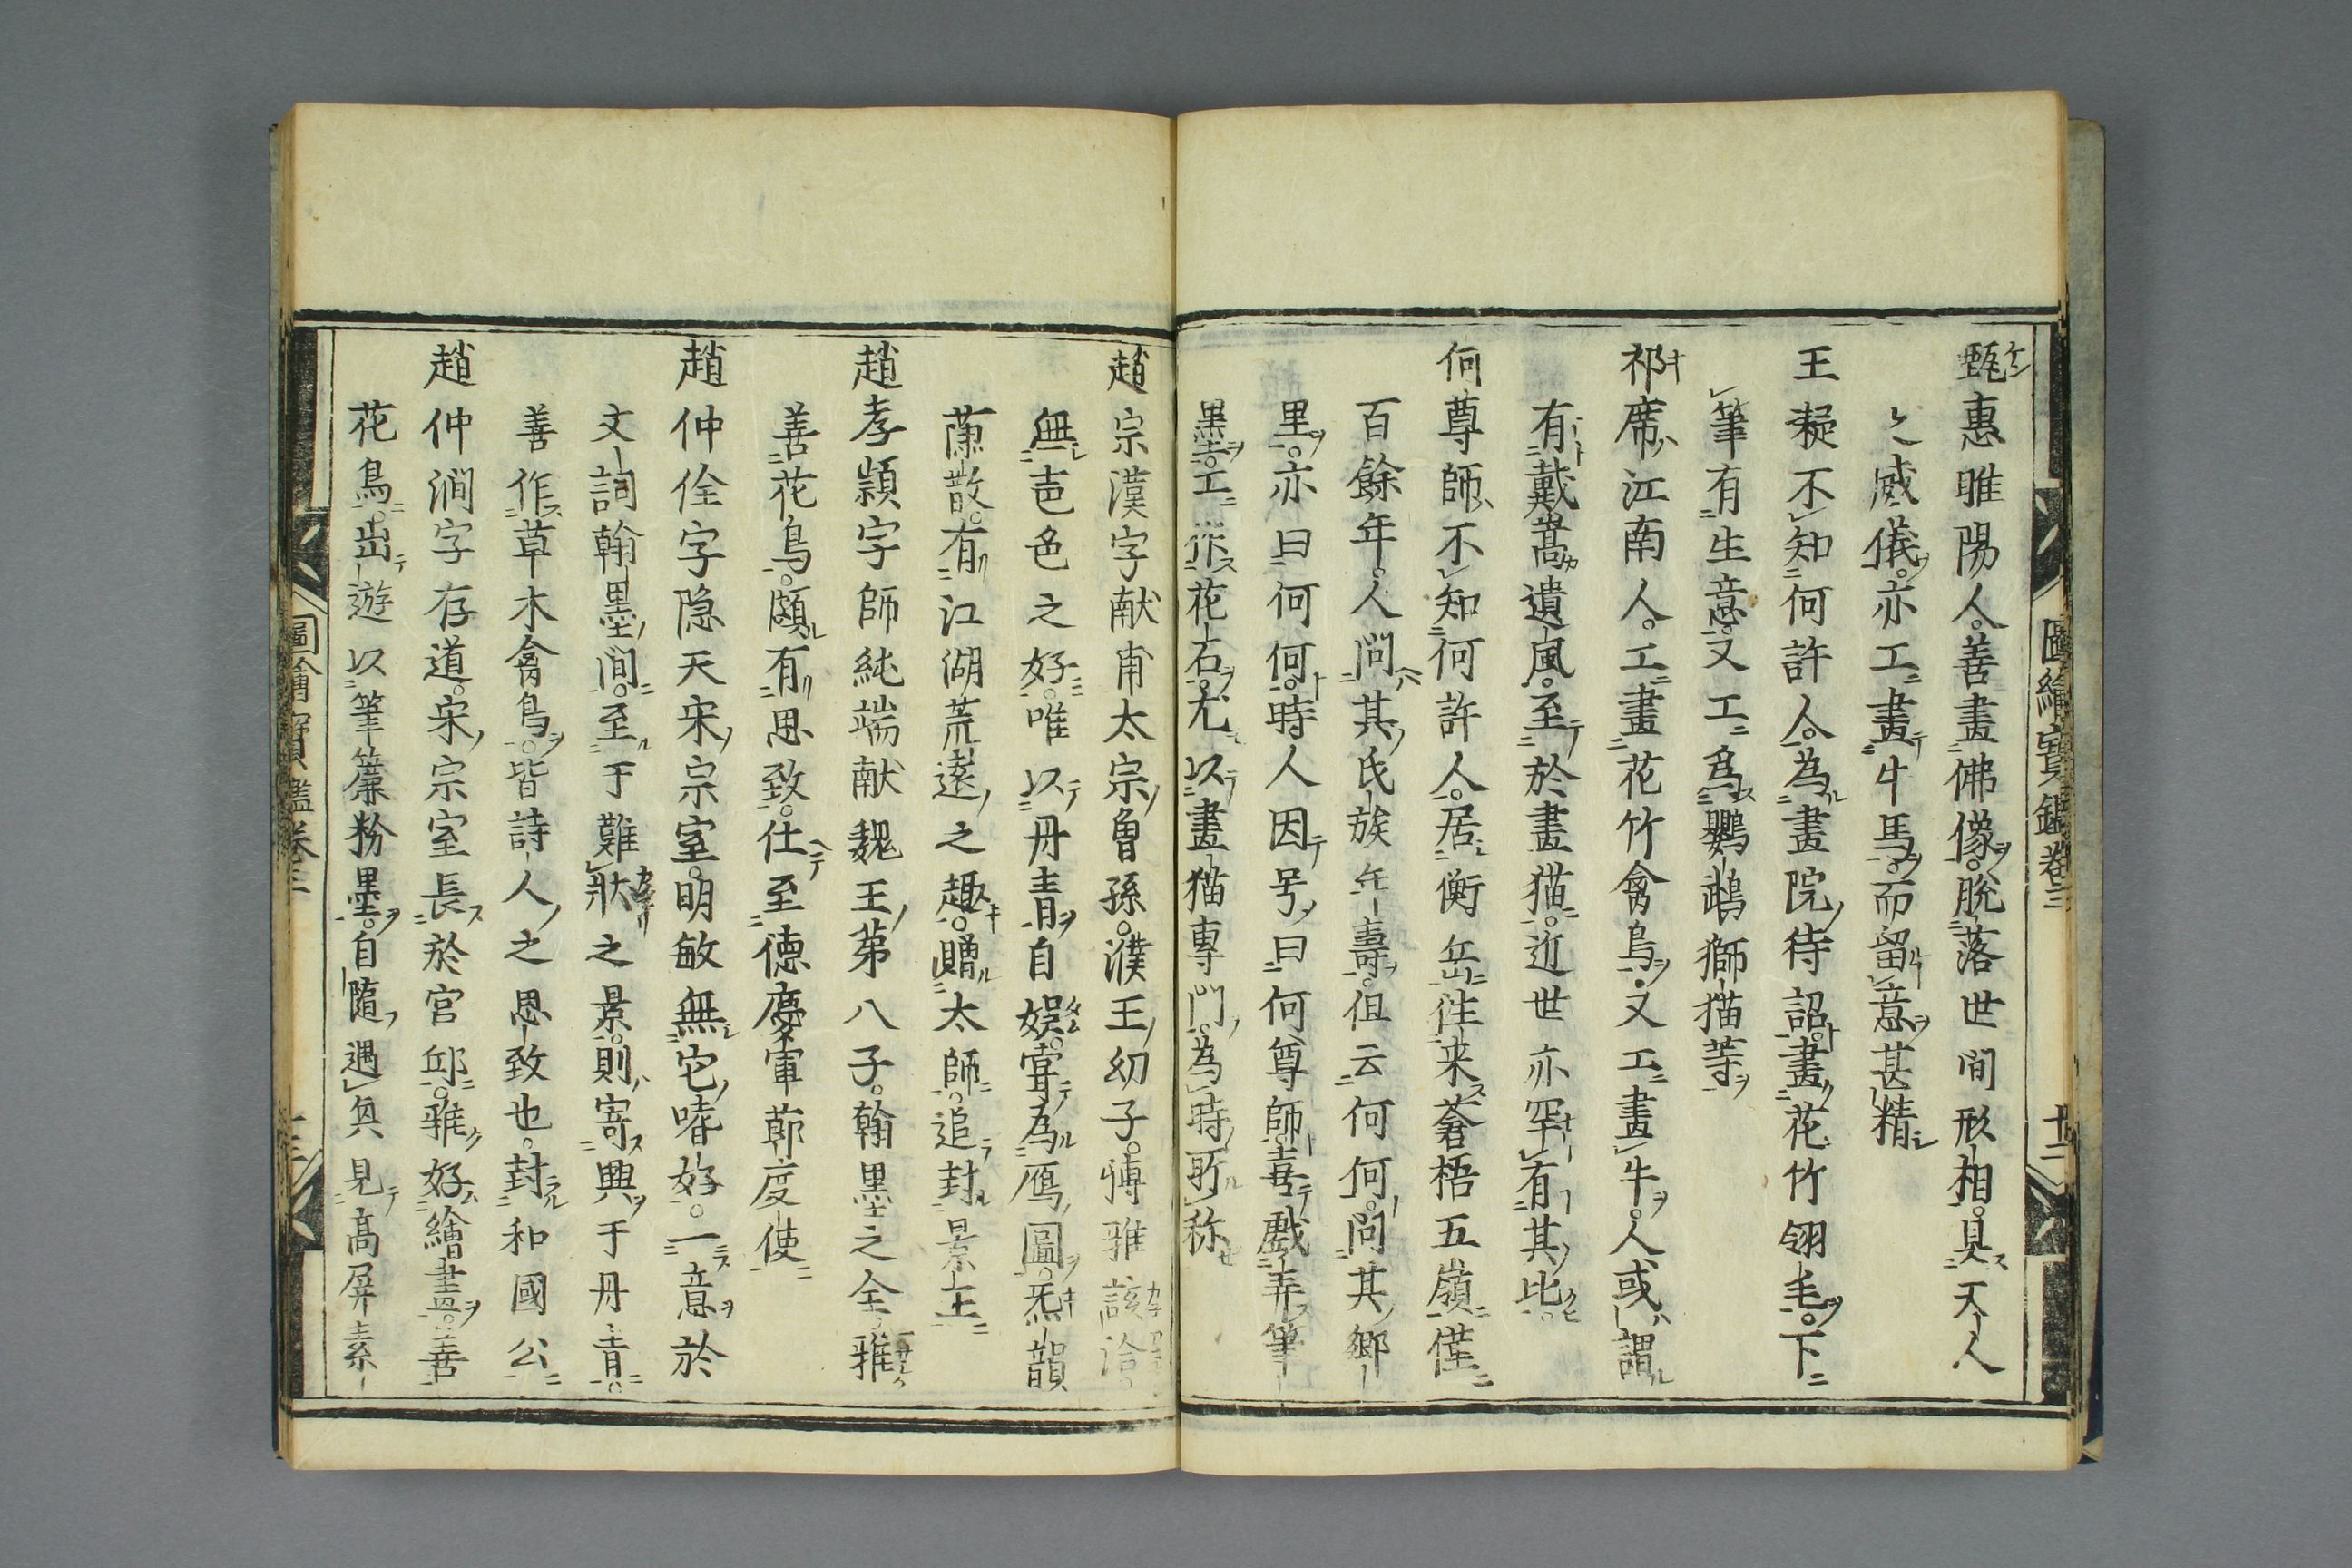 圖繪寳鑑卷三
十二
甄惠睢陽人。善畫佛像。脫落世間形相。具天人
之威儀。亦工畫牛馬。而留意甚精
王凝不知何許人。為畫院待詔。畫花竹翎毛。下
筆有生意。又工為鸚鵡獅猫等
祁序江南人。工畫花竹禽鳥。又工畫牛。人或謂
有戴嵩遺風。至於畫猫。近世亦罕有其比。
何尊師不知何許人。居衡岳徃来蒼梧五嶺僅
百餘年。人問其氏族年壽。但云何何。問其郷
里。亦曰何何。時人因号曰何尊師。喜戲弄筆
墨。工作花石。尤以畫猫專門。為時所称
趙宗漢字献甫太宗曽孫。濮王幼子。愽雅該洽。
無声色之好。唯以丹青自娯。甞為鴈圖。氣韻
蕭散。有江湖荒遠之趣。贈太師。追封景王
趙孝穎字師純端献魏王第八子。翰墨之余。雅
善花鳥。頗有思致。仕至德慶軍節度使
趙仲佺字隐夫宋宗室。明敏無它嗜好。一意於
文詞翰墨间。至于難狀之景。則寄興于丹青。
善作草木禽鳥。皆詩人之思致也。封和國公
趙仲澗字存道。宋宗室長於宮邸。雅好繪畫。善
花鳥。出遊以筆簾粉墨。自随遇興見髙屏素
圖繪寳鑑卷三
十三